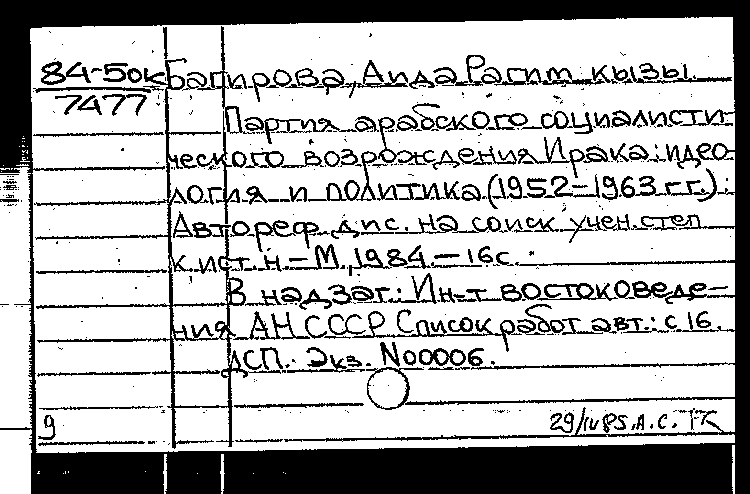 84-5ок Багирова, Аида Рагим кызы
7477
Партия арабского социалисти-
ческого возрождения Ирака: идео-
логия и политика (1952-1963 гг.):
Автореф. дис. на соиск. учен. степ.
к. ист. н. - М., 1984. - 16 с.
В надзаг.: Ин-т востоковеде-
ния АН СССР Список работ авт.: с 16.
ДСП. Экз. N00006.
9
29/IV 85. А. С. ГК